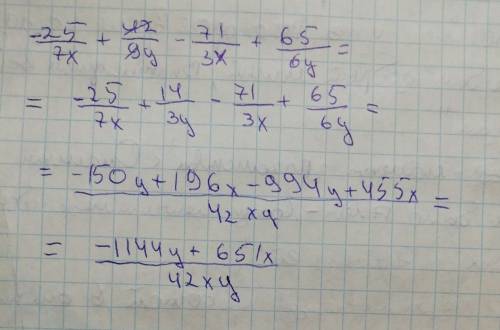 -25/7x + 42/9y - 71/3x + 65/6y =
= -25/7x + 14/3y - 71/3x + 65/6y =
= -150y + 196x - 994y + 455x / 42xy =
= -1144y + 651x / 42xy